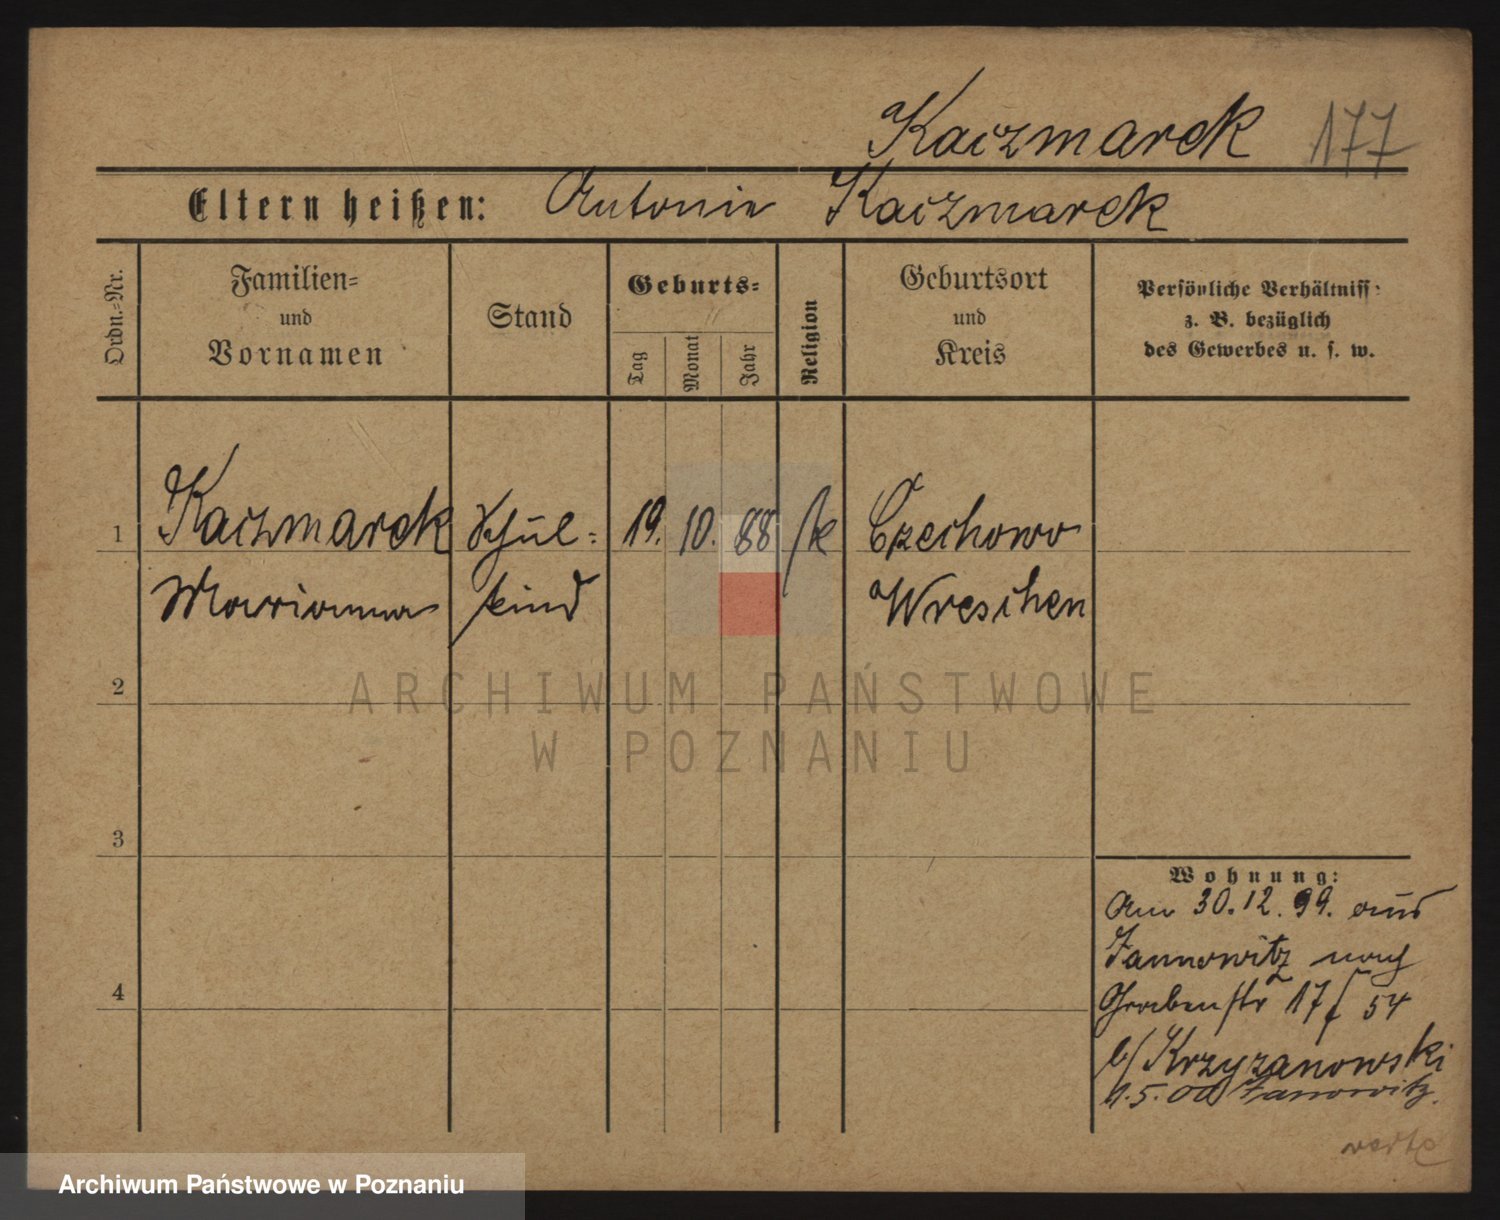 Kaczmarek 177
Eltern heißen: Antonie Kaczmarek
Ordn.-Nr.
Familien-
und
Vornamen
Stand
Geburts-
Tag
Monat
Jahr
Religion
Geburtsort
und
Kreis
Persönliche Verhältniss-
z. B. bezüglich
des Gewerbes u. s. w.
1 Kaczmarek Schul- 19. 10. 88 k Czechowo
Marianna kind Wreschen
2
ARCHIWUM PAŃSTWOWE
W POZNANIU
3
Wohnung:
Am 30.12.99. aus
Jannowitz nach
Grabenstr 17 54
b/ Krzyzanowski
1.5.00 Janowitz.
4
verte
Archiwum Państwowe w Poznaniu